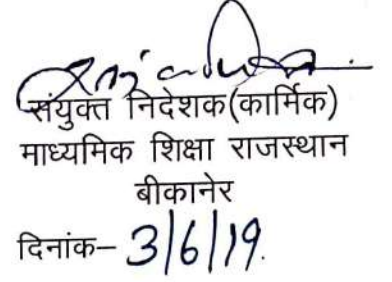 संयुक्त निदेशक(कार्मिक)
माध्यमिक शिक्षा राजस्थान
बीकानेर
दिनांक– 3/6/19.